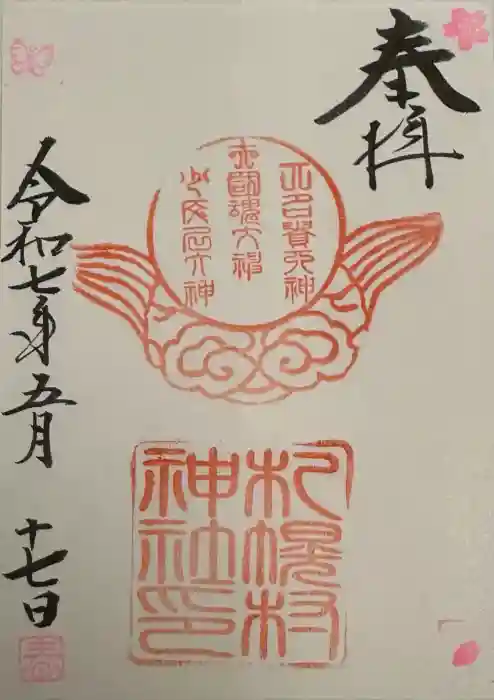 奉拝
大己貴大神
大國魂大神
少彦名大神
札幌村
神社印
令和七年五月十七日